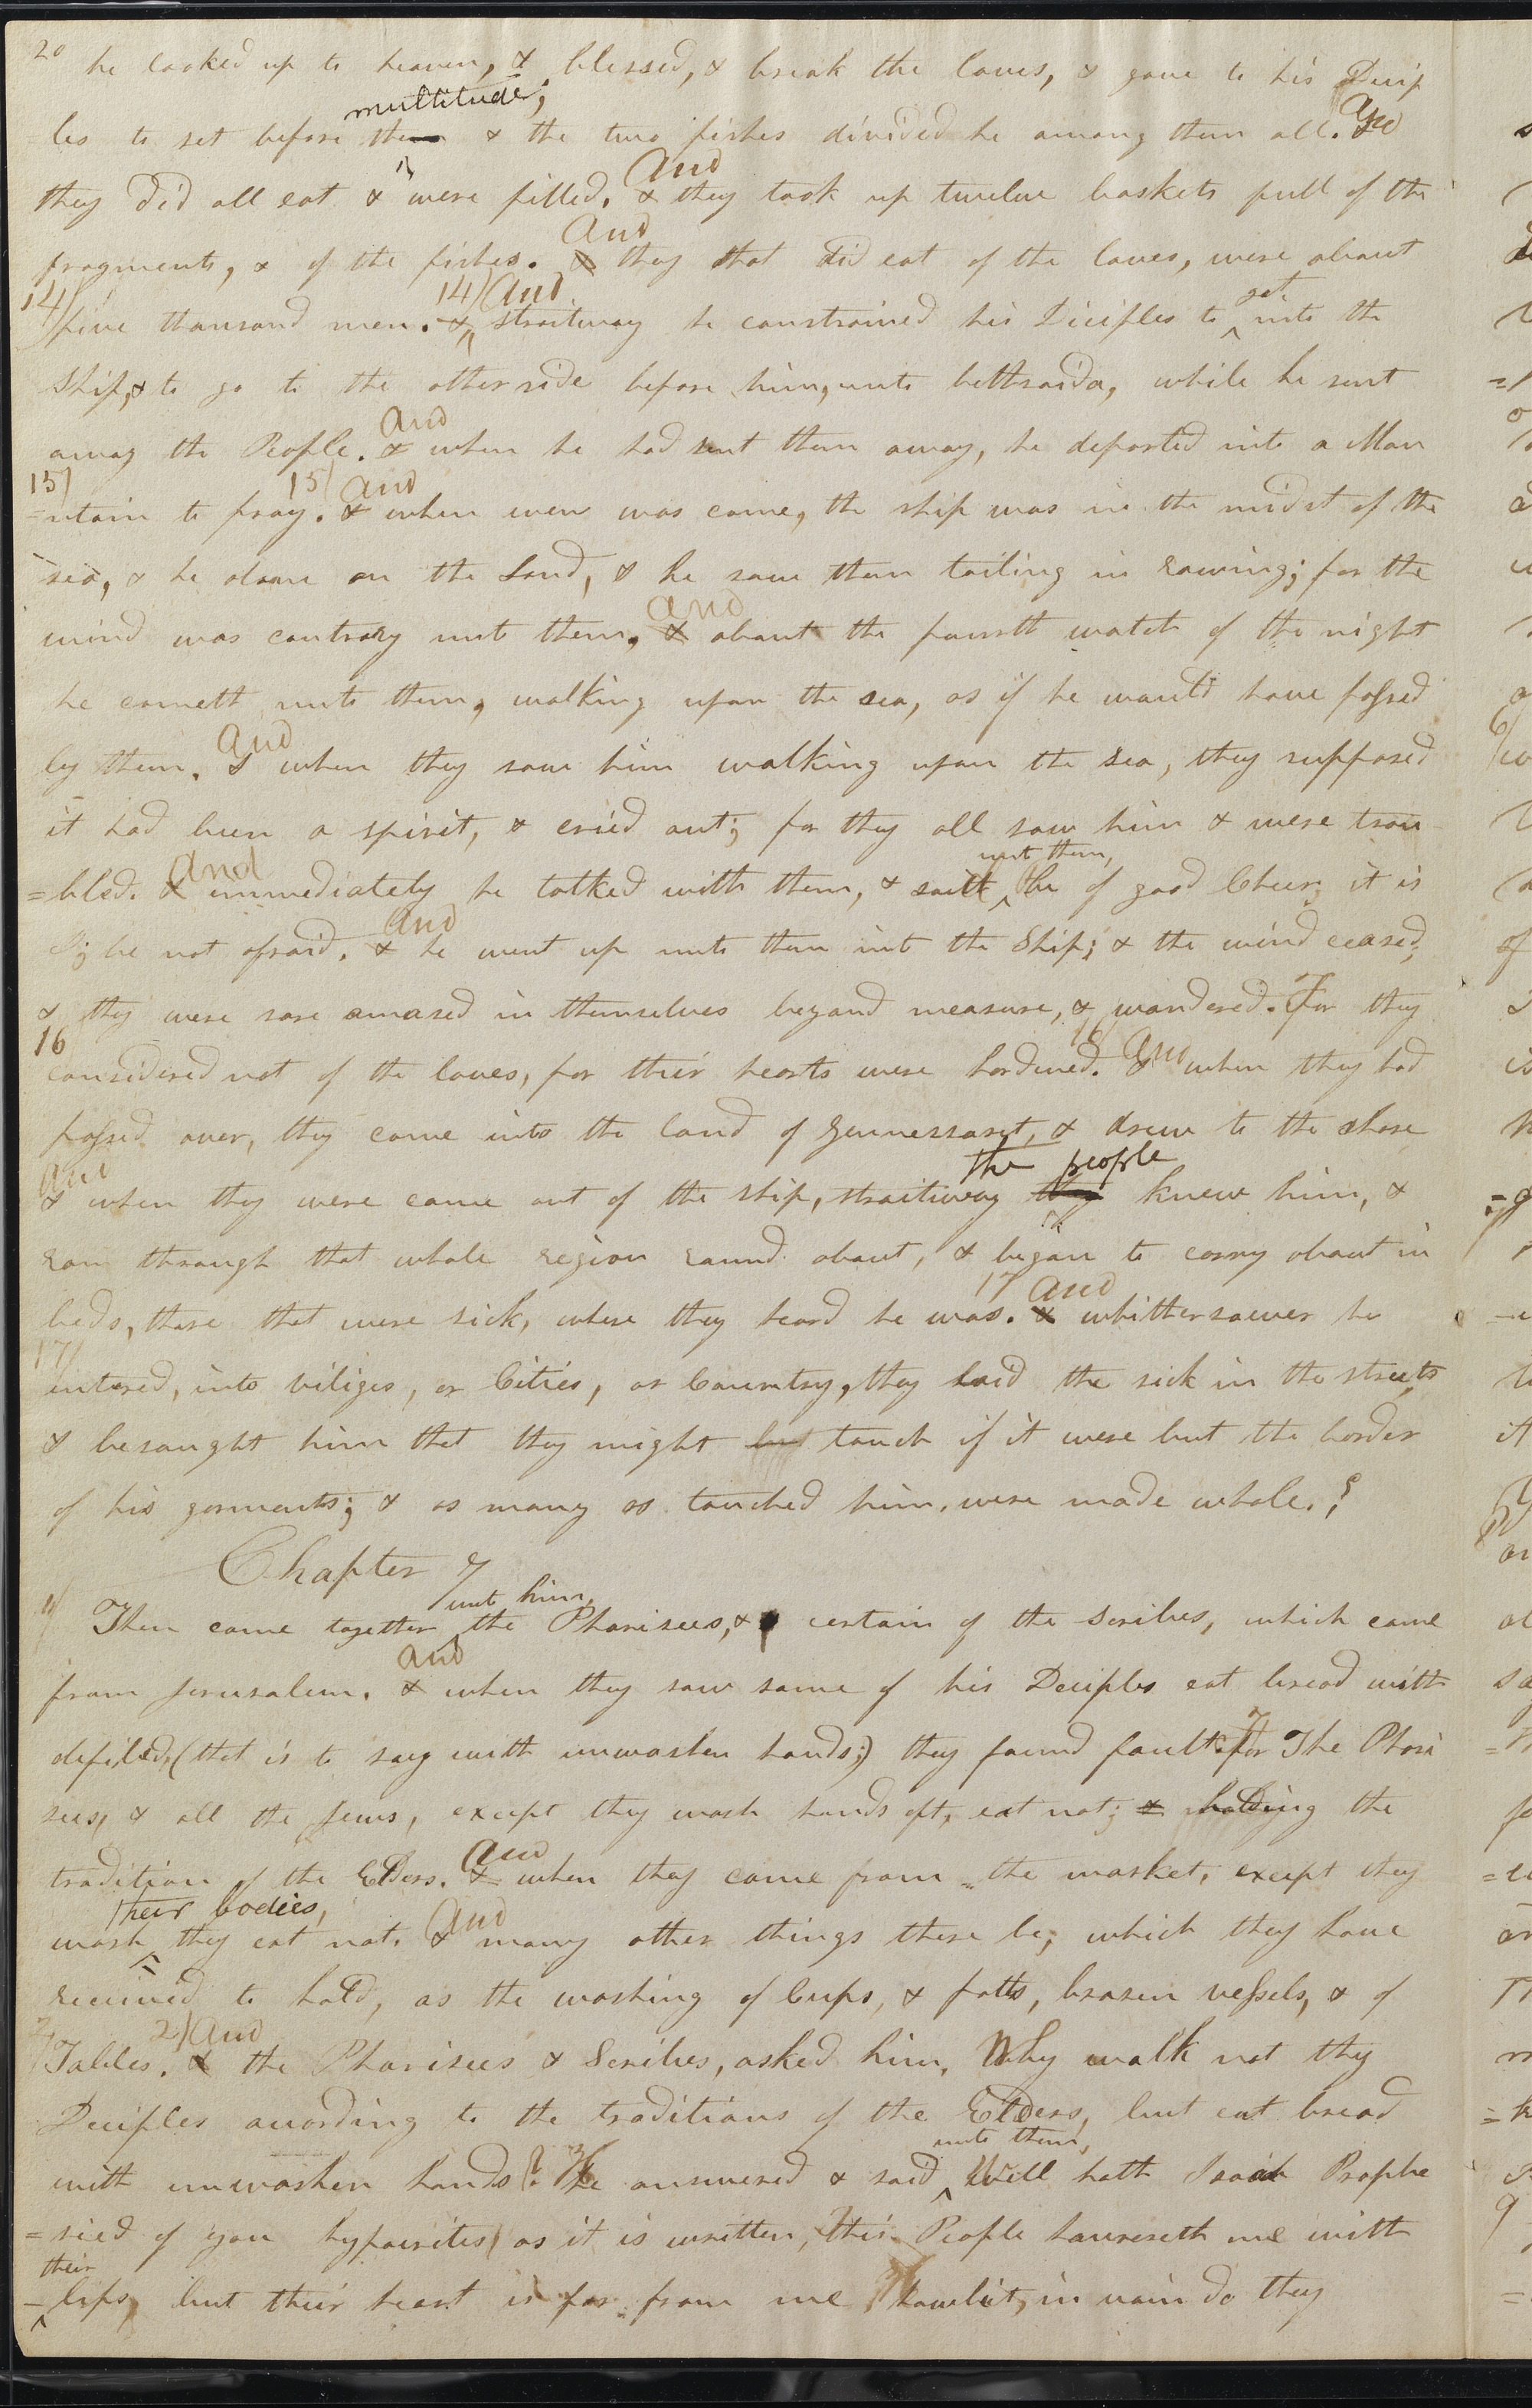 20 he looked up to heaven, & blessed, & break the loves, & gave to his Decip
multitude;
les to set before them & the two fishes divided he among them all. And
they did all eat & were filled. & And they took up twelve baskets full of the
fragments, & of the fishes. & And they that did eat of the loves, were about
14) five thousand men. 14) & And straitway he constrained his Diciples to get into the
Ship, & to go to the other side before him, unto bethsaida, while he sent
away the People. & And when he had sent them away, he departed into a Mou
15) =ntain to pray. 15) & And when even was come, the ship was in the midst of the
sea, & he alone on the Land, & he saw them toiling in rowing; for the
wind was contrary unto them, & And about the fourth watch of the night
he cometh unto them, walking upon the sea, as if he would have passed
by them. & And when they saw him walking upon the sea, they supposed
it had been a spirit, & cried out; for they all saw him & were trou
=bled. & And immediately he talked with them, & saith unto them, be of good Cheer; it is
I; be not afraid. & And he went up unto them into the Ship; & the wind ceased,
& they were sore amased in themselves beyond measure, & wondered. For they
16 considered not of the loves, for their hearts were hardened. 16) & And when they had
passed over, they come into the land of Gennessaret, & drew to the shore
& And when they were come out of the ship, straitway they the people knew him, &
ran through that whole region round about, & began to carry about in
beds, those that were sick, where they heard he was. 17 & And whithersoever he
17) entered, into viliges, or Cities, or Country, they laid the sick in the streets
& besought him that they might but touch if it were but the border
of his garments; & as many as touched him, were made whole.
Chapter 7
1) Then came together unto him, the Pharisees, & certain of the Scribes, which came
from Jerusalem. & And when they saw some of his Deciples eat bread with
defiled, (that is to say with unwashen hands;) they found fault. For The Phari
sees, & all the Jews, except they wash hands oft, eat not; & holding the
tradition of the Elders. & And when they come from the market, except they
wash their bodies, they eat not. & And many other things there be, which they have
received to hold, as the washing of Cups, & potts, brasen vessels, & of
2) Tables. 2) & And the Pharisees & Scribes, asked him, Why walk not thy
Deciples acording to the traditions of the Elders, but eat bread
with unwashen hands? 3 He answered & said unto them, Well hath Isaiah Prophe
=sied of you hypocrites, as it is written, This People honoreth me with
their
=lips, but their heart is far from me, howbeit, in vain do they